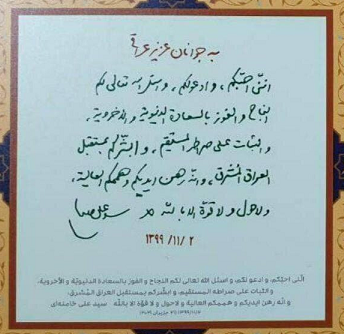 به جوانان عزیز عراق
انّنی احبّکم، و ادعو لکم، و اسئل الله تعالی لکم
النجاح و الفوز بالسعادة الدنیویة و الاخرویة،
و الثبات علی صراطه المستقیم، و ابشّرکم بمستقبل
العراق المشرق، و انّه رهن ایدیکم و هممکم العالیة،
و لاحول و لا قوّة الا بالله سید علی خامنه‌ای
۱۳۹۹/۱۱/۲
انّنی احبّکم، و ادعو لکم، و اسئل الله تعالی لکم النجاح و الفوز بالسعادة الدنیویّة و الأخرویة،
و الثبات علی صراطه المستقیم، و ابشّرکم بمستقبل العراق المُشرق،
و انّه رهن ایدیکم و هممکم العالیة و لاحول و لا قوّة الا بالله سید علی خامنه‌ای